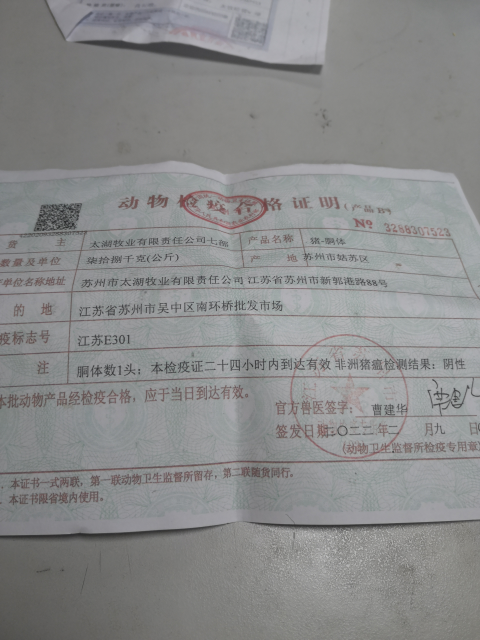 动物检疫合格证明(产品B)
№ 3288307523
货 主 太湖牧业有限责任公司七部 产品名称 猪-胴体
数量及单位 柒拾捌千克(公斤) 产 地 苏州市姑苏区
单位名称地址 苏州市太湖牧业有限责任公司 江苏省苏州市新郭港路88号
的 地 江苏省苏州市吴中区南环桥批发市场
疫标志号 江苏E301
注 胴体数1头；本检疫证二十四小时内到达有效 非洲猪瘟检测结果：阴性
本批动物产品经检疫合格，应于当日到达有效。
官方兽医签字： 曹建华
签发日期：二〇二二年二月九日
(动物卫生监督所检疫专用章)
本证书一式两联，第一联动物卫生监督所留存，第二联随货同行。
本证书限省境内使用。